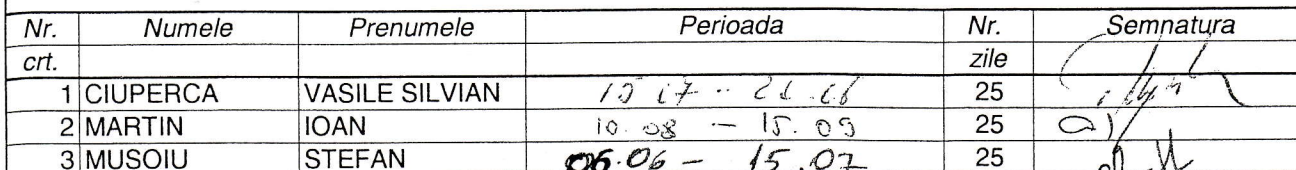 Nr. Numele Prenumele Perioada Nr. Semnatura
crt. zile
1 CIUPERCA VASILE SILVIAN 25
2 MARTIN IOAN 10.08 - 15.09 25
3 MUSOIU STEFAN 06.06 - 15.07 25